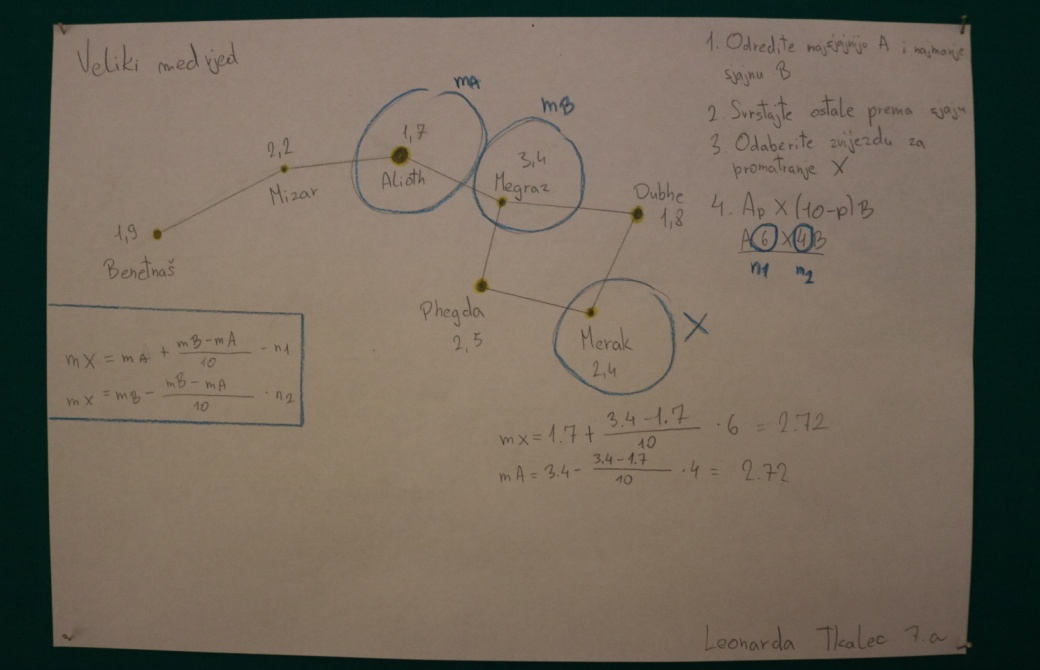 Veliki medvjed
1. Odredite najsjajniju A i najmanje
sjajnu B
2. Svrstajte ostale prema sjaju
3. Odaberite zvijezdu za
promatranje X
4. Ap X (10-p) B
A 6 X 4 B
n1 n2
mA
mB
1,7
Alioth
3,4
Megraz
2,2
Mizar
Dubhe
1,8
1,9
Benetnaš
Phegda
2,5
Merak
2,4
X
mX = mA + mB-mA/10 · n1
mX = mB - mB-mA/10 · n2
mx = 1.7 + 3.4-1.7/10 · 6 = 2.72
mA = 3.4 - 3.4-1.7/10 · 4 = 2.72
Leonarda Tkalec 7.a